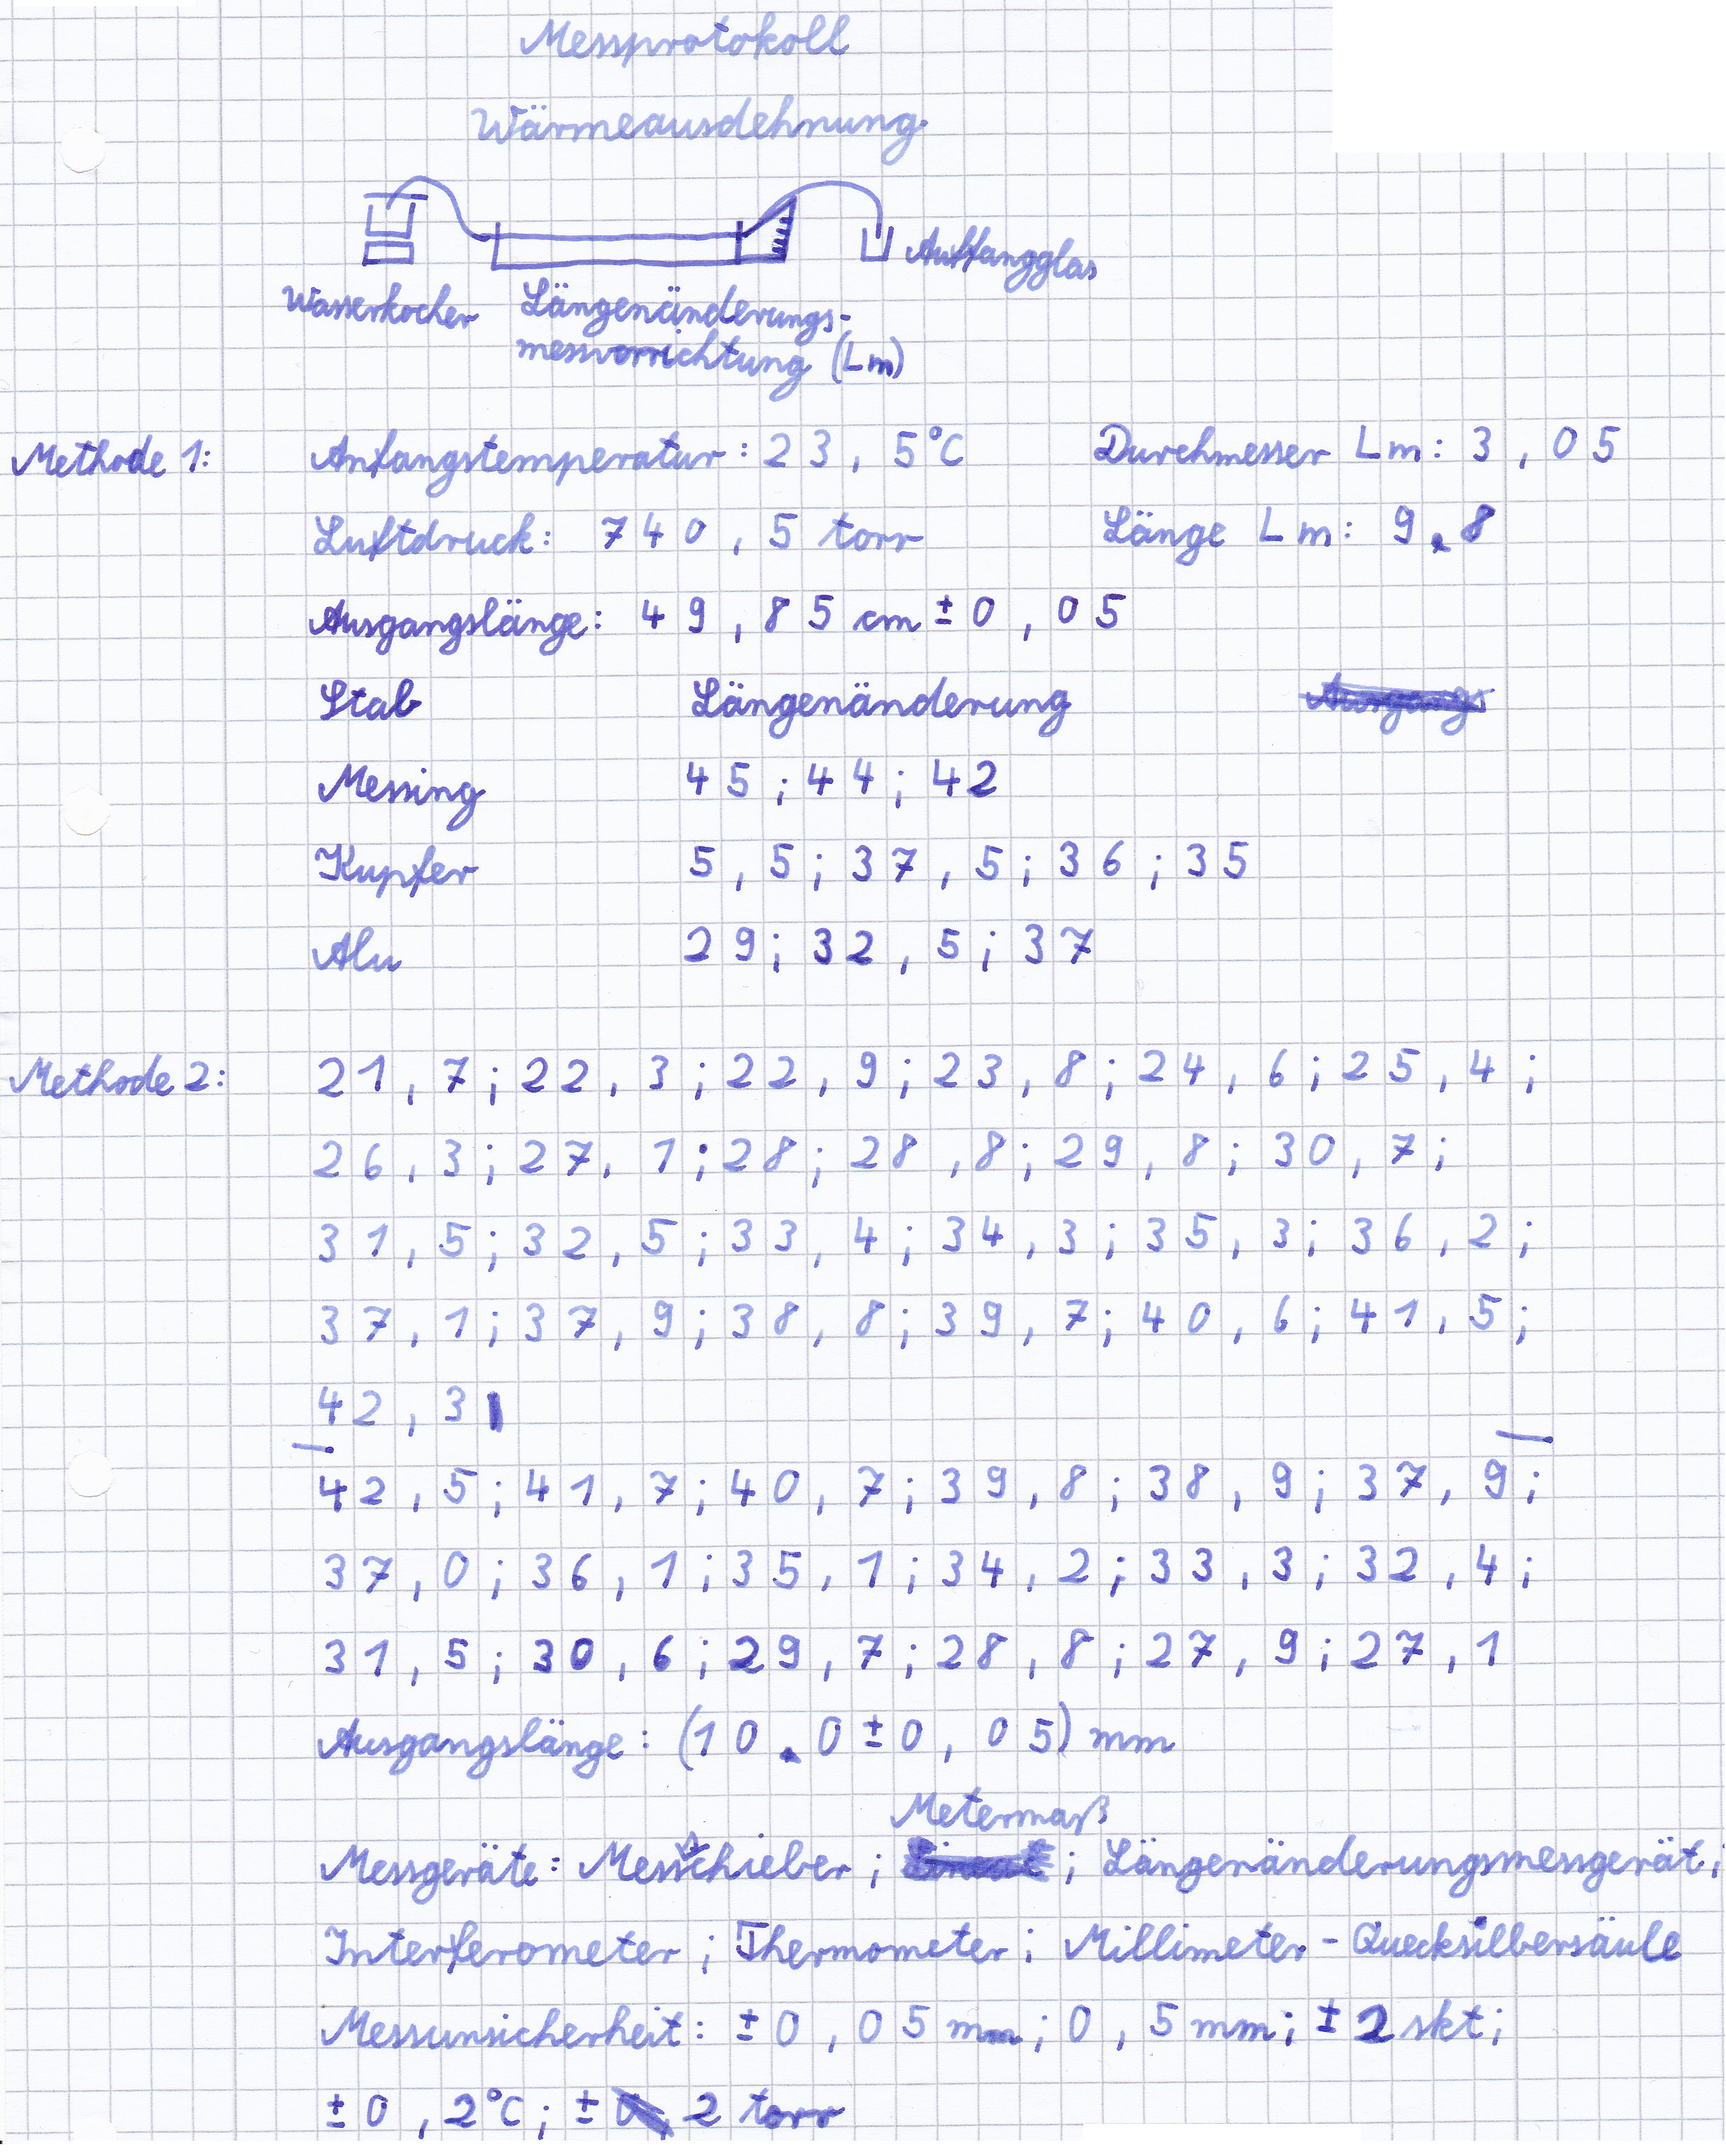 Messprotokoll
Wärmeausdehnung
Auffangglas
Wasserkocher Längenänderungs-
messvorrichtung (Lm)
Methode 1: Anfangstemperatur: 23,5°C Durchmesser Lm: 3,05
Luftdruck: 740,5 torr Länge Lm: 9.8
Ausgangslänge: 49,85 cm ± 0,05
Stab Längenänderung
Messing 45; 44; 42
Kupfer 5,5; 37,5; 36; 35
Alu 29; 32,5; 37
Methode 2: 21,7; 22,3; 22,9; 23,8; 24,6; 25,4;
26,3; 27,1; 28; 28,8; 29,8; 30,7;
31,5; 32,5; 33,4; 34,3; 35,3; 36,2;
37,1; 37,9; 38,8; 39,7; 40,6; 41,5;
42,3
42,5; 41,7; 40,7; 39,8; 38,9; 37,9;
37,0; 36,1; 35,1; 34,2; 33,3; 32,4;
31,5; 30,6; 29,7; 28,8; 27,9; 27,1
Ausgangslänge: (10.0 ± 0,05) mm
Metermaß
Messgeräte: Messschieber; ; Längenänderungsmessgerät;
Interferometer; Thermometer; Millimeter-Quecksilbersäule
Messunsicherheit: ±0,05 mm; 0,5 mm; ±2 skt;
±0,2°C; ± 2 torr